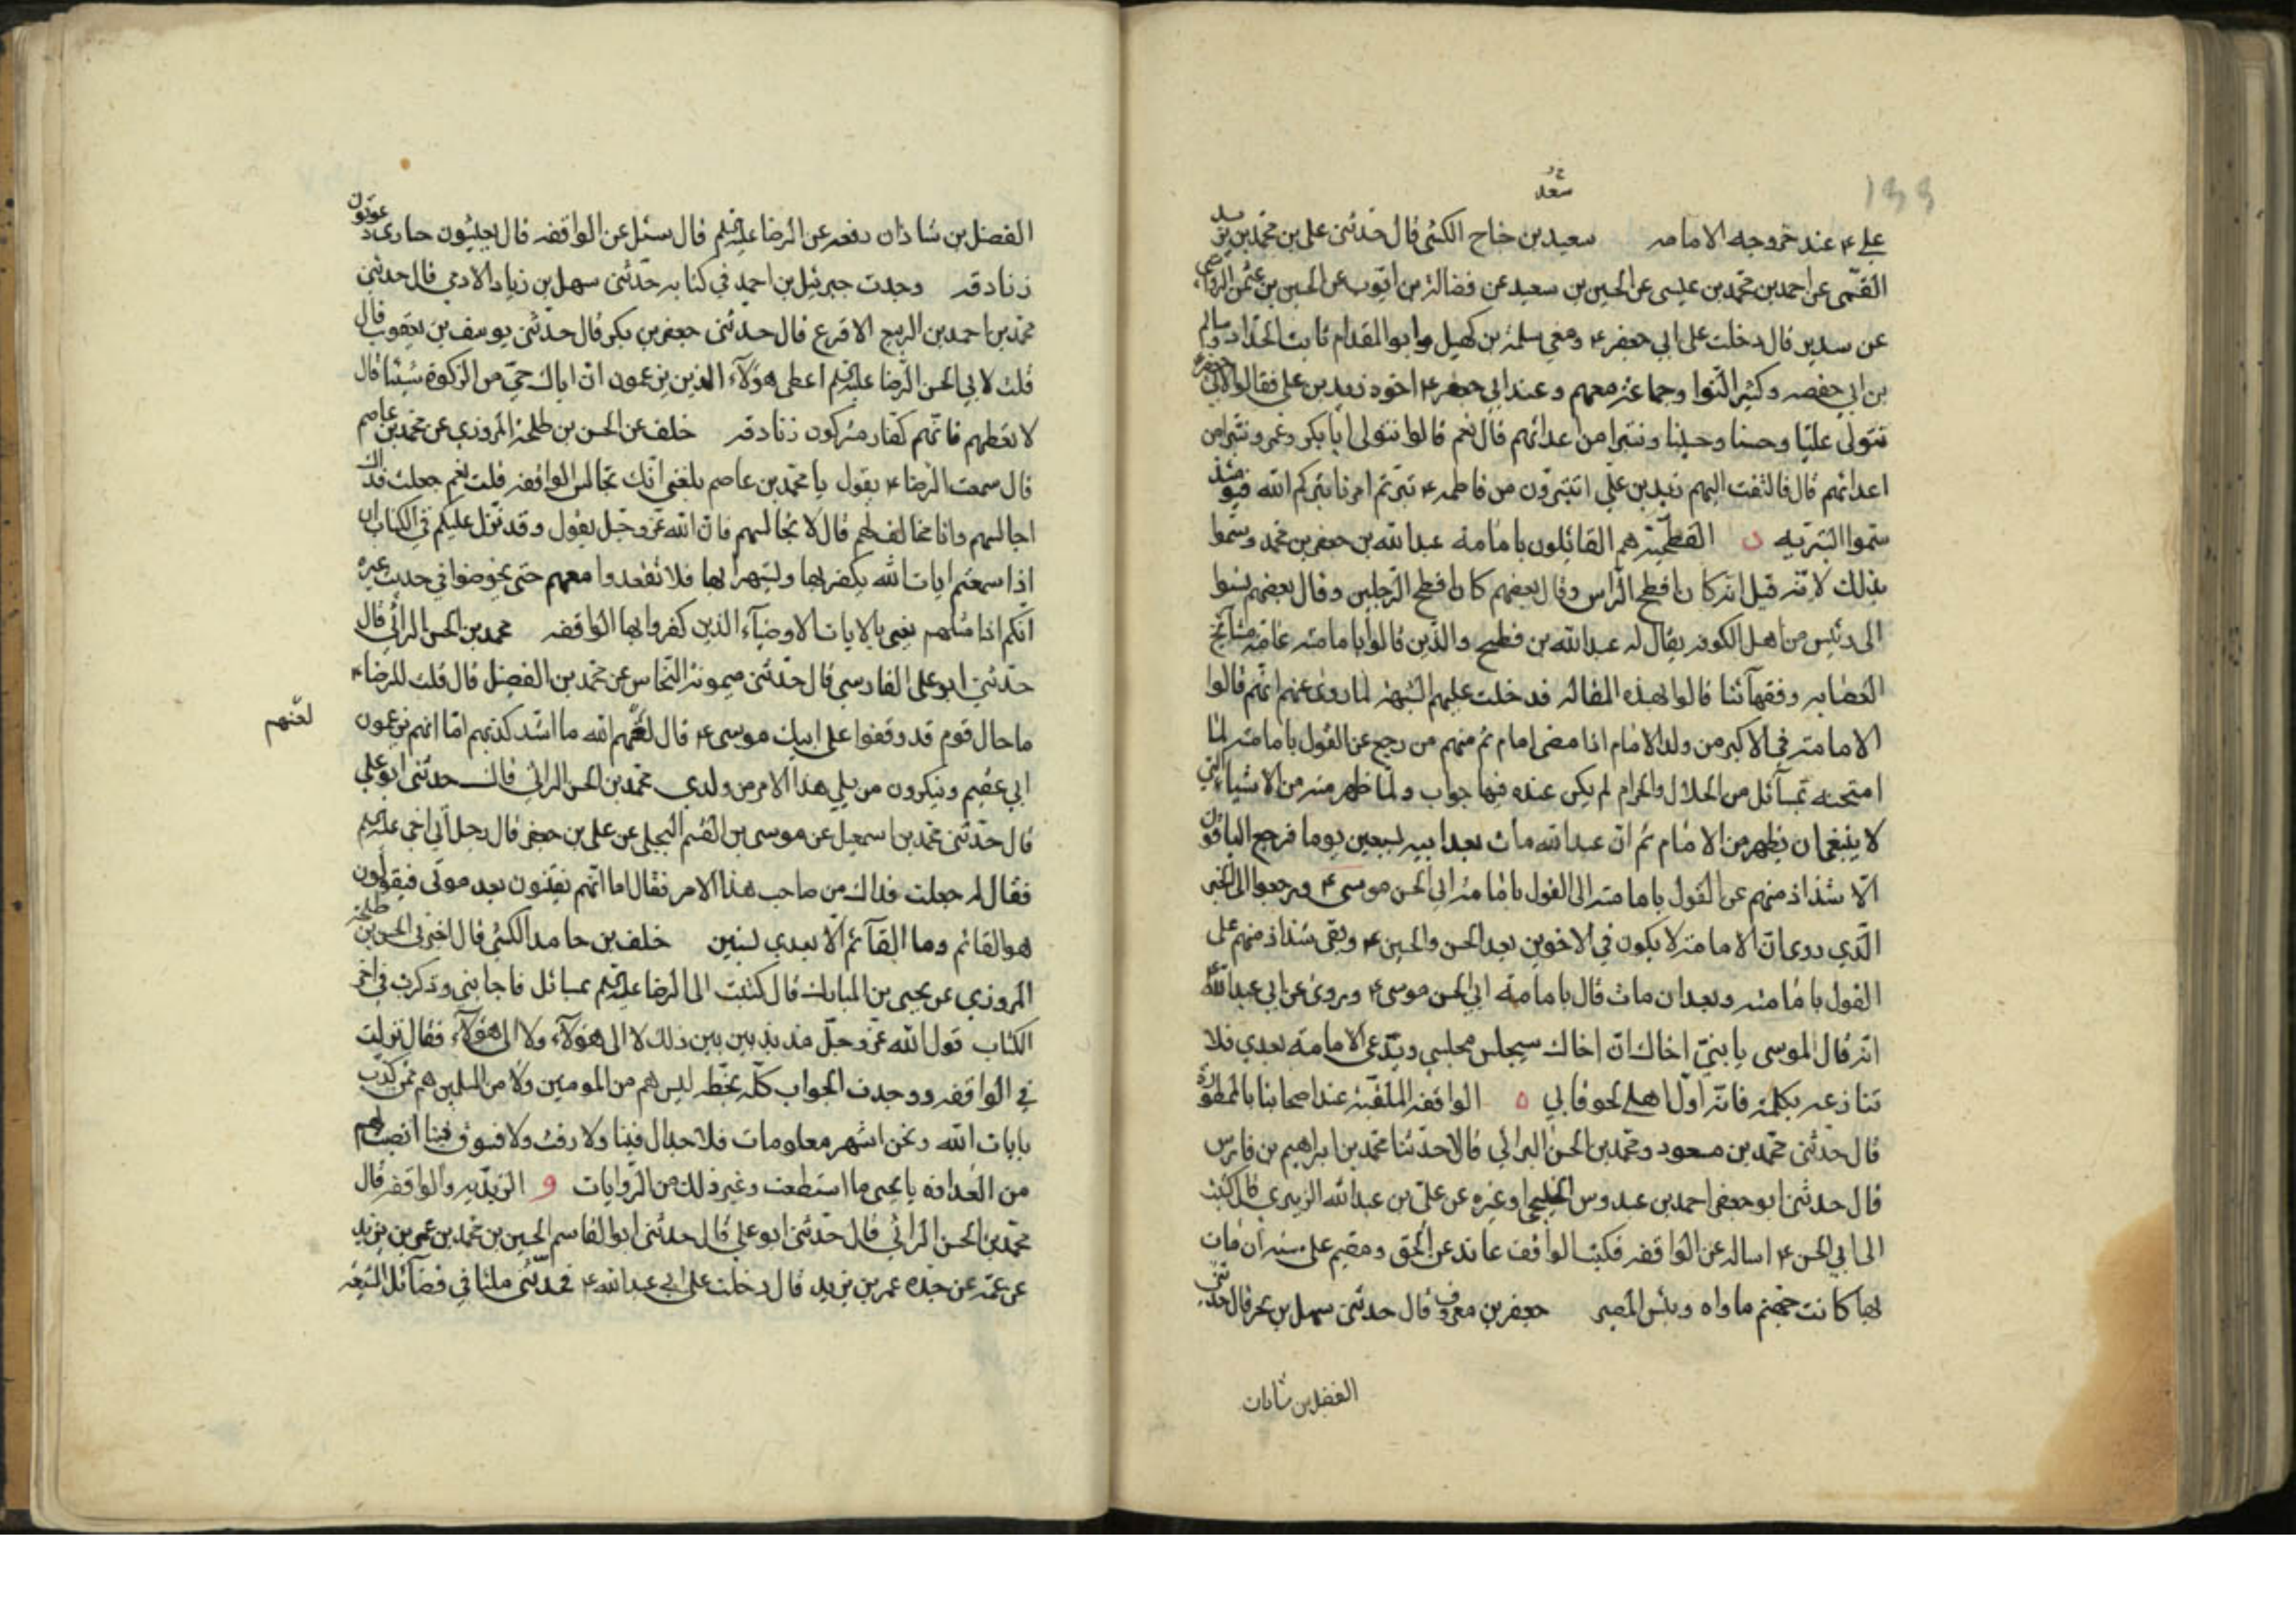 ۱۹۹
سعد
علي ع عند خروجه الامامه سعيد بن جناح الكشي قال حدثني علي بن محمد بن يزيد
القمّي عن احمد بن محمد بن عيسى عن الحسين بن سعيد عن فضالة بن ايوب عن الحسين بن عثمن الرواسي
عن سدير قال دخلت على ابي جعفر ع ومعي سلمة بن كهيل وابو المقدام ثابت الحداد وسالم
بن ابي حفصه وكثير النوا وجماعة معهم وعند ابي جعفر ع اخوه زيد بن علي فقالوا لابي جعفر ع
نتولى عليّا وحسنا وحسينا ونتبرا من اعدائهم قال نعم قالوا نتولى ابا بكر وعمر ونتبرا من
اعدائهم قال فالتفت اليهم زيد بن علي اتتبرّون من فاطمه ع تبرتم امرنا بتركم الله فيومئذ
سمّوا البتريه ن الفطحيّة هم القائلون بامامة عبد الله بن جعفر بن محمد وسمّوا
بذلك لانّه قيل انه كان افطح الراس وقال بعضهم كان افطح الرجلين وقال بعضهم نسبوا
الى رئيس من اهل الكوفه يقال له عبد الله بن فطيح والذين قالوا بامامته عامّة مشايخ
العصابه وفقهآئنا قالوا بهذه المقاله فدخلت عليهم الشبهة لما روى عنهم انهم قالوا
الامامة في الاكبر من ولد الامام اذا مضى امام ثم منهم من رجع عن القول بامامته لما
امتحنه بمسآئل من الحلال والحرام لم يكن عنده فيها جواب ولمّا ظهر منه من الاشياء التي
لا ينبغي ان يظهر من الامام ثم انّ عبد الله مات بعد ابيه بسبعين يوما فرجع الباقون
الّا شذاذ منهم عن القول بامامته الى القول بامامة ابي الحسن موسى ع ورجعوا الى الخبر
الّذي روى انّ الامامة لا يكون في الاخوين بعد الحسن والحسين ع وبقى شذاذ منهم على
القول بامامته وبعد ان مات قال بامامة ابي الحسن موسى ع وروى عن ابي عبد الله ع
انه قال لموسى يا بنيّ اخاك انّ اخاك سيجلس مجلسي ويدّعي الامامة بعدي فلا
تنازعه بكلمة فانّه اوّل اهلي لحوقا بي ه الواقفه الملقّبة عند اصحابنا بالممطورة
قال حدّثني محمّد بن مسعود ومحمد بن الحسن البراثي قالا حدّثنا محمّد بن ابراهيم بن فارس
قال حدثني ابو جعفر احمد بن عبدوس الخليجي او غيره عن علي بن عبد الله الزبيري قال كتبت
الى ابي الحسن ع اساله عن الواقفه فكتب الواقف عاند عن الحق ومقيم على سيئه ان مات
بها كانت جهنم ماواه وبئس المصير جعفر بن معروف قال حدثني سهل بن بحر قال حدثني
الفضل بن شاذان
الفضل بن شاذان رفعه عن الرضا عليه السلم قال سئل عن الواقفه قال يعيشون حيارى ويموتون
زنادقه وجدت جبرئيل بن احمد في كتابه حدّثني سهل بن زياد الادمي قال حدثني
محمد بن احمد بن الربيع الاقرع قال حدثني جعفر بن بكر قال حدّثني يوسف بن يعقوب قال
قلت لابي الحسن الرضا عليه السلم اعطى هؤلآء الذين يزعمون انّ اباك حيّ من الزكوة شيئا قال
لا تعطهم فانّهم كفّار مشركون زنادقه خلف عن الحسن بن طلحة المروزي عن محمد بن عاصم
قال سمعت الرضا ع يقول يا محمد بن عاصم بلغني انّك تجالس الواقفه قلت نعم جعلت فداك
اجالسهم وانا مخالف لهم قال لا تجالسهم فانّ الله عزّ وجل يقول وقد نزل عليكم في الكتاب ان
اذا سمعتم ايات الله يكفر بها ويستهزا بها فلا تقعدوا معهم حتى يخوضوا في حديث غيره
انّكم اذا مثلهم يعني بالايات الاوصيآء الذين كفروا بها الواقفه محمد بن الحسن البراثي قال
حدثني ابو علي الفارسي قال حدثني ميمونة النخاس عن محمد بن الفضيل قال قلت للرضا ع
ما حال قوم قد وقفوا على ابيك موسى ع قال لعنهم الله ما اشد كذبهم امّا انهم يزعمون
لعنهم
ابي عقيم وينكرون من يلي هذا الامر من ولدي محمد بن الحسن البراثي قال حدثني ابو علي
قال حدثني محمد بن اسمعيل عن موسى بن القسم البجلي عن علي بن جعفر قال رجل اتى اخي عليه السلم
فقال له جعلت فداك من صاحب هذا الامر فقال اما انّهم يفتنون بعد موتى فيقولون
هو القائم وما القآئم الّا بعدي بسنين خلف بن حامد الكشي قال اخبرني الحسن بن طلحة
المروزي عن يحيى بن المبارك قال كتبت الى الرضا عليه السلم بمسائل فاجابني وذكرت في اخر
الكتاب قول الله عزّ وجلّ مذبذبين بين ذلك لا الى هؤلآء ولا الى هؤلآء فقال نزلت
في الواقفه ووجدت الجواب كلّه بخطه ليس هم من المومنين ولا من المسلمين هم ممن كذب
بايات الله ونحن اشهر معلومات فلا جدال فينا ولا رفث ولا فسوق فينا انصب لهم
من العداوة يا يحيى ما استطعت وغير ذلك من الروايات و الزيديه والواقفه قال
محمّد بن الحسن البراثي قال حدّثني ابو علي قال حدثني ابو القاسم الحسين بن محمد بن عمر بن يزيد
عن عمّه عن جدّه عمر بن يزيد قال دخلت على ابي عبد الله ع فحدّثني مليّا في فضآئل الشيعة